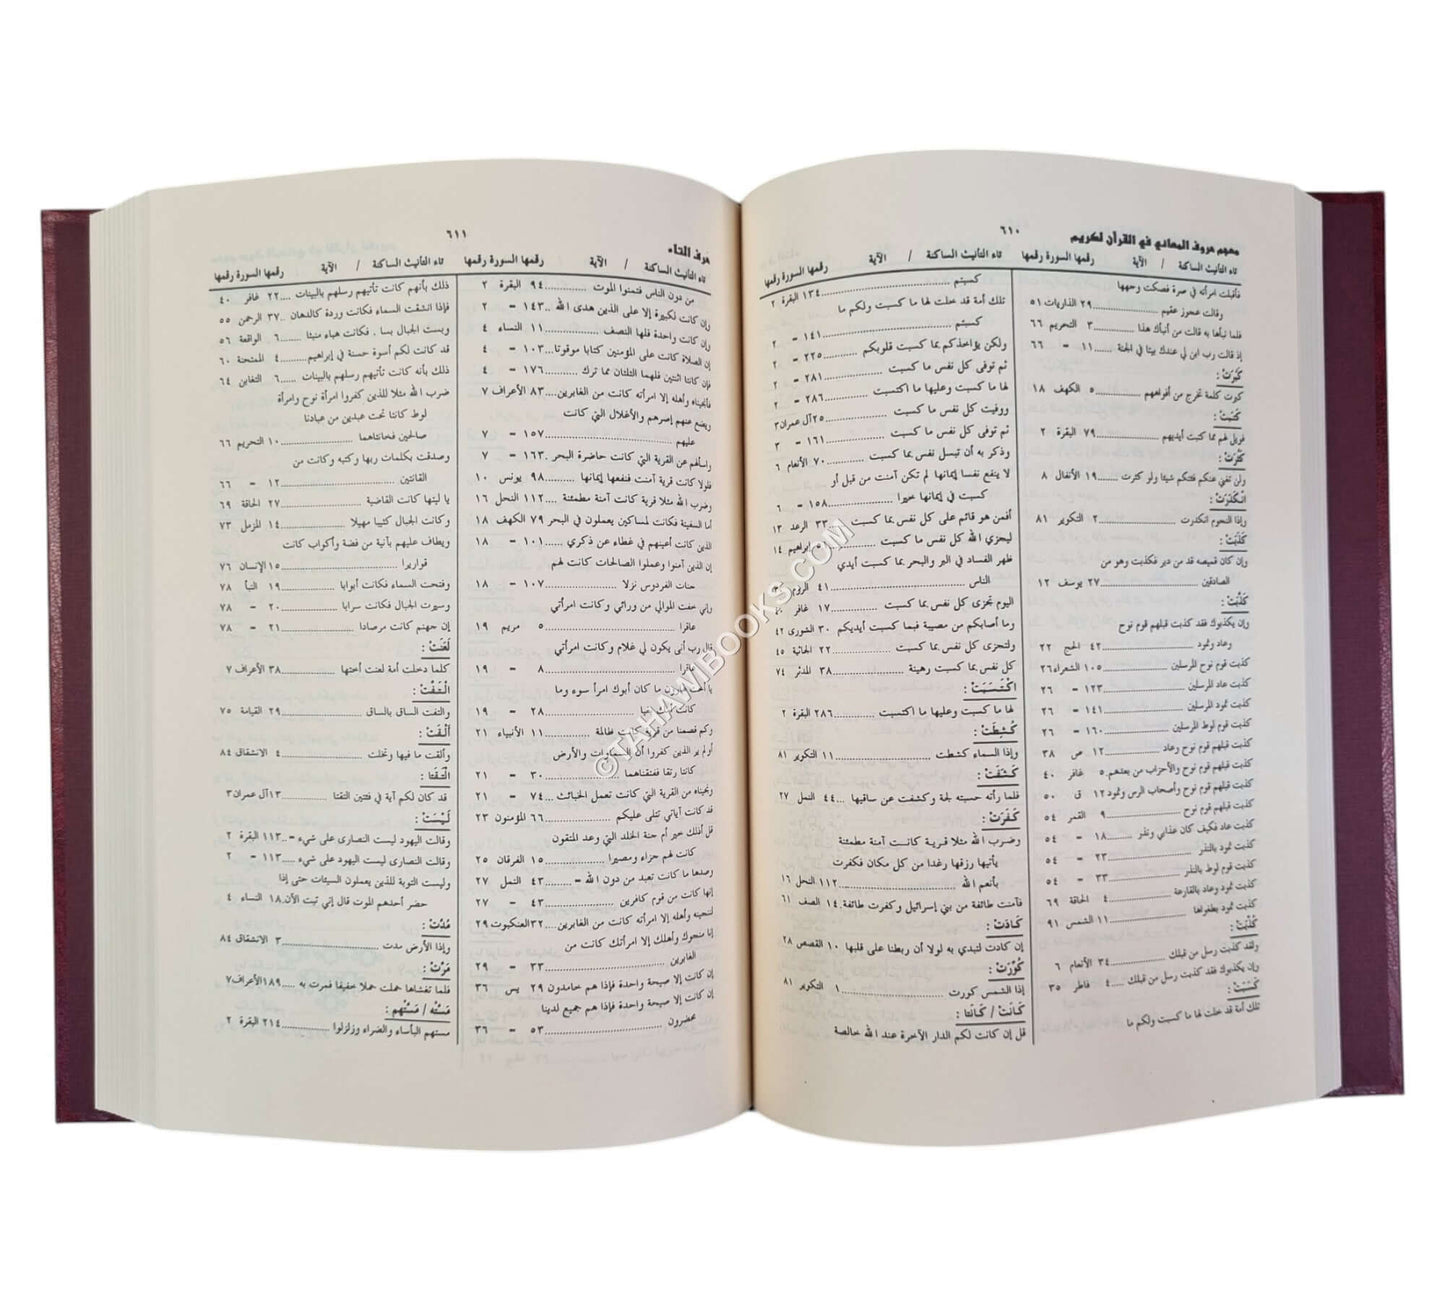 معجم حروف المعاني في القرآن لكريم
٦١٠
تاء التأنيث الساكنة / الآية رقمها السورة رقمها
فأقبلت امرأته في صرة فصكت وجهها
وقالت عجوز عقيم ........ ٢٩ الذاريات ٥١
فلما نبأها به قالت من أنبأك هذا ....... ٣ التحريم ٦٦
إذ قالت رب ابن لي عندك بيتا في الجنة ..... ١١ = ٦٦
كَبُرَتْ :
كبرت كلمة تخرج من أفواههم ........ ٥ الكهف ١٨
كَتَبَتْ :
فويل لهم مما كتبت أيديهم ........ ٧٩ البقرة ٢
كَثُرَتْ :
ولن تغني عنكم فئتكم شيئا ولو كثرت ..... ١٩ الأنفال ٨
انْكَدَرَتْ :
وإذا النجوم انكدرت ........ ٢ التكوير ٨١
كَذَبَتْ :
وإن كان قميصه قد من دبر فكذبت وهو من
الصادقين ........ ٢٧ يوسف ١٢
كَذَّبَتْ :
وإن يكذبوك فقد كذبت قبلهم قوم نوح
وعاد وثمود ........ ٤٢ الحج ٢٢
كذبت قوم نوح المرسلين ........ ١٠٥ الشعراء ٢٦
كذبت عاد المرسلين ........ ١٢٣ = ٢٦
كذبت ثمود المرسلين ........ ١٤١ = ٢٦
كذبت قوم لوط المرسلين ........ ١٦٠ = ٢٦
كذبت قبلهم قوم نوح وعاد ........ ١٢ ص ٣٨
كذبت قبلهم قوم نوح والأحزاب من بعدهم. ٥ غافر ٤٠
كذبت قبلهم قوم نوح وأصحاب الرس وثمود ١٢ ق ٥٠
كذبت قبلهم قوم نوح ........ ٩ القمر ٥٤
كذبت عاد فكيف كان عذابي ونذر ........ ١٨ = ٥٤
كذبت ثمود بالنذر ........ ٢٣ = ٥٤
كذبت قوم لوط بالنذر ........ ٣٣ = ٥٤
كذبت ثمود وعاد بالقارعة ........ ٤ الحاقة ٦٩
كذبت ثمود بطغواها ........ ١١ الشمس ٩١
كُذِّبَتْ :
ولقد كذبت رسل من قبلك ........ ٣٤ الأنعام ٦
وإن يكذبوك فقد كذبت رسل من قبلك ..... ٤ فاطر ٣٥
كَسَبَتْ :
تلك أمة قد خلت لها ما كسبت ولكم ما
تاء التأنيث الساكنة / الآية رقمها السورة رقمها
كسبتم ........ ١٣٤ البقرة ٢
تلك أمة قد خلت لها ما كسبت ولكم ما
كسبتم ........ ١٤١ = ٢
ولكن يؤاخذكم بما كسبت قلوبكم ........ ٢٢٥ = ٢
ثم توفى كل نفس ما كسبت ........ ٢٨١ = ٢
لها ما كسبت وعليها ما اكتسبت ........ ٢٨٦ = ٢
ووفيت كل نفس ما كسبت ........ ٢٥ آل عمران ٣
ثم توفى كل نفس ما كسبت ........ ١٦١ = ٣
وذكر به أن تبسل نفس بما كسبت ........ ٧٠ الأنعام ٦
لا ينفع نفسا إيمانها لم تكن آمنت من قبل أو
كسبت في إيمانها خيرا ........ ١٥٨ = ٦
أفمن هو قائم على كل نفس بما كسبت .... ٣٣ الرعد ١٣
ليجزي الله كل نفس ما كسبت ........ إبراهيم ١٤
ظهر الفساد في البر والبحر بما كسبت أيدي
الناس ........ ٤١ الروم
اليوم تجزى كل نفس بما كسبت ........ ١٧ غافر
وما أصابكم من مصيبة فبما كسبت أيديكم ٣٠ الشورى ٤٢
ولتجزى كل نفس بما كسبت ........ ٢٢ الجاثية ٤٥
كل نفس بما كسبت رهينة ........ ٣٨ المدثر ٧٤
اكْتَسَبَتْ :
لها ما كسبت وعليها ما اكتسبت ........ ٢٨٦ البقرة ٢
كُشِطَتْ :
وإذا السماء كشطت ........ ١١ التكوير ٨١
كَشَفَتْ :
فلما رأته حسبته لجة وكشفت عن ساقيها ... ٤٤ النمل ٢٧
كَفَرَتْ :
وضرب الله مثلا قرية كانت آمنة مطمئنة
يأتيها رزقها رغدا من كل مكان فكفرت
بأنعم الله ........ ١١٢ النحل ١٦
فآمنت طائفة من بني إسرائيل وكفرت طائفة. ١٤ الصف ٦١
كَادَتْ :
إن كادت لتبدي به لولا أن ربطنا على قلبها ١٠ القصص ٢٨
كُوِّرَتْ :
إذا الشمس كورت ........ ١ التكوير ٨١
كَانَتْ / كَانَتا :
قل إن كانت لكم الدار الآخرة عند الله خالصة
حرف التاء
٦١١
تاء التأنيث الساكنة / الآية رقمها السورة رقمها
من دون الناس فتمنوا الموت ........ ٩٤ البقرة ٢
وإن كانت لكبيرة إلا على الذين هدى الله ... ١٤٣ = ٢
وإن كانت واحدة فلها النصف ........ ١١ النساء ٤
إن الصلاة كانت على المؤمنين كتابا موقوتا ... ١٠٣ = ٤
فإن كانتا اثنتين فلهما الثلثان مما ترك ........ ١٧٦ = ٤
فأنجيناه وأهله إلا امرأته كانت من الغابرين .... ٨٣ الأعراف ٧
ويضع عنهم إصرهم والأغلال التي كانت
عليهم ........ ١٥٧ = ٧
واسألهم عن القرية التي كانت حاضرة البحر .. ١٦٣ = ٧
فلولا كانت قرية آمنت فنفعها إيمانها ........ ٩٨ يونس ١٠
وضرب الله مثلا قرية كانت آمنة مطمئنة .... ١١٢ النحل ١٦
أما السفينة فكانت لمساكين يعملون في البحر ٧٩ الكهف ١٨
الذين كانت أعينهم في غطاء عن ذكري ..... ١٠١ = ١٨
إن الذين آمنوا وعملوا الصالحات كانت لهم
جنات الفردوس نزلا ........ ١٠٧ = ١٨
وإني خفت الموالي من ورائي وكانت امرأتي
عاقرا ........ ٥ مريم ١٩
قال رب أنى يكون لي غلام وكانت امرأتي
عاقرا ........ ٨ = ١٩
يا أخت هارون ما كان أبوك امرأ سوء وما
كانت أمك بغيا ........ ٢٨ = ١٩
وكم قصمنا من قرية كانت ظالمة ........ ١١ الأنبياء ٢١
أولم ير الذين كفروا أن السماوات والأرض
كانتا رتقا ففتقناهما ........ ٣٠ = ٢١
ونجيناه من القرية التي كانت تعمل الخبائث ... ٧٤ = ٢١
قد كانت آياتي تتلى عليكم ........ ٦٦ المؤمنون ٢٣
قل أذلك خير أم جنة الخلد التي وعد المتقون
كانت لهم جزاء ومصيرا ........ ١٥ الفرقان ٢٥
وصدها ما كانت تعبد من دون الله = ........ ٤٣ النمل ٢٧
إنها كانت من قوم كافرين ........ ٤٣ = ٢٧
لننجينه وأهله إلا امرأته كانت من الغابرين... ٣٢ العنكبوت ٢٩
إنا منجوك وأهلك إلا امرأتك كانت من
الغابرين ........ ٣٣ = ٢٩
إن كانت إلا صيحة واحدة فإذا هم خامدون ٢٩ يس ٣٦
إن كانت إلا صيحة واحدة فإذا هم جميع لدينا
محضرون ........ ٥٣ = ٣٦
تاء التأنيث الساكنة / الآية رقمها السورة رقمها
ذلك بأنهم كانت تأتيهم رسلهم بالبينات ..... ٢٢ غافر ٤٠
فإذا انشقت السماء فكانت وردة كالدهان .. ٣٧ الرحمن ٥٥
وبست الجبال بسا . فكانت هباء منبثا ..... ٦ الواقعة ٥٦
قد كانت لكم أسوة حسنة في إبراهيم ..... ٤ الممتحنة ٦٠
ذلك بأنه كانت تأتيهم رسلهم بالبينات ..... ٦ التغابن ٦٤
ضرب الله مثلا للذين كفروا امرأة نوح وامرأة
لوط كانتا تحت عبدين من عبادنا
صالحين فخانتاهما ........ ١٠ التحريم ٦٦
وصدقت بكلمات ربها وكتبه وكانت من
القانتين ........ ١٢ = ٦٦
يا ليتها كانت القاضية ........ ٢٧ الحاقة ٦٩
وكانت الجبال كثيبا مهيلا ........ ١٤ المزمل ٧٣
ويطاف عليهم بآنية من فضة وأكواب كانت
قواريرا ........ ١٥ الإنسان ٧٦
وفتحت السماء فكانت أبوابا ........ ١٩ النبأ ٧٨
وسيرت الجبال فكانت سرابا ........ ٢٠ = ٧٨
إن جهنم كانت مرصادا ........ ٢١ = ٧٨
لَعَنَتْ :
كلما دخلت أمة لعنت أختها ........ ٣٨ الأعراف ٧
الْتَفَّتْ :
والتفت الساق بالساق ........ ٢٩ القيامة ٧٥
أَلْقَتْ :
وألقت ما فيها وتخلت ........ ٤ الانشقاق ٨٤
الْتَقَتا :
قد كان لكم آية في فئتين التقتا ........ ١٣ آل عمران ٣
لَيْسَتْ :
وقالت اليهود ليست النصارى على شيء = .. ١١٣ البقرة ٢
وقالت النصارى ليست اليهود على شيء ..... ١١٣ = ٢
وليست التوبة للذين يعملون السيئات حتى إذا
حضر أحدهم الموت قال إني تبت الآن. ١٨ النساء ٤
مُدَّتْ :
وإذا الأرض مدت ........ ٣ الانشقاق ٨٤
مَرَّتْ :
فلما تغشاها حملت حملا خفيفا فمرت به ... ١٨٩ الأعراف ٧
مَسَّتْه / مَسَّتْهم :
مستهم البأساء والضراء وزلزلوا ........ ٢١٤ البقرة ٢
©TAHAMIBOOKS.COM